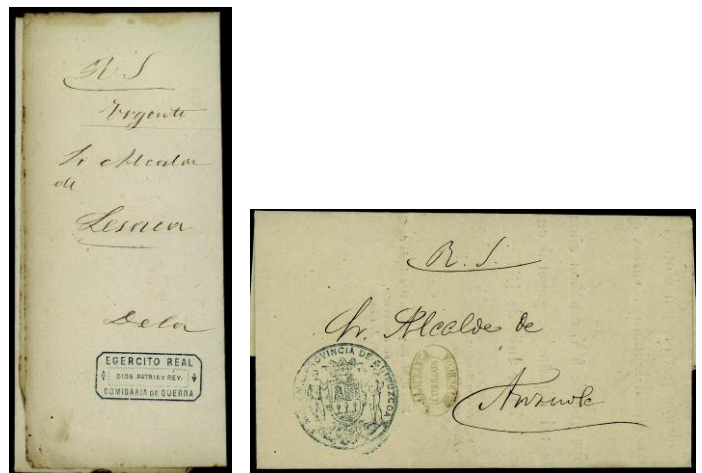 R. S.
Urgente
Sr Alcalde
de
Lesaca
De la
EGERCITO REAL
DIOS PATRIA Y REY.
COMISARIA DE GUERRA
R. S.
Sr. Alcalde de
PROVINCIA DE GUIPUZCOA